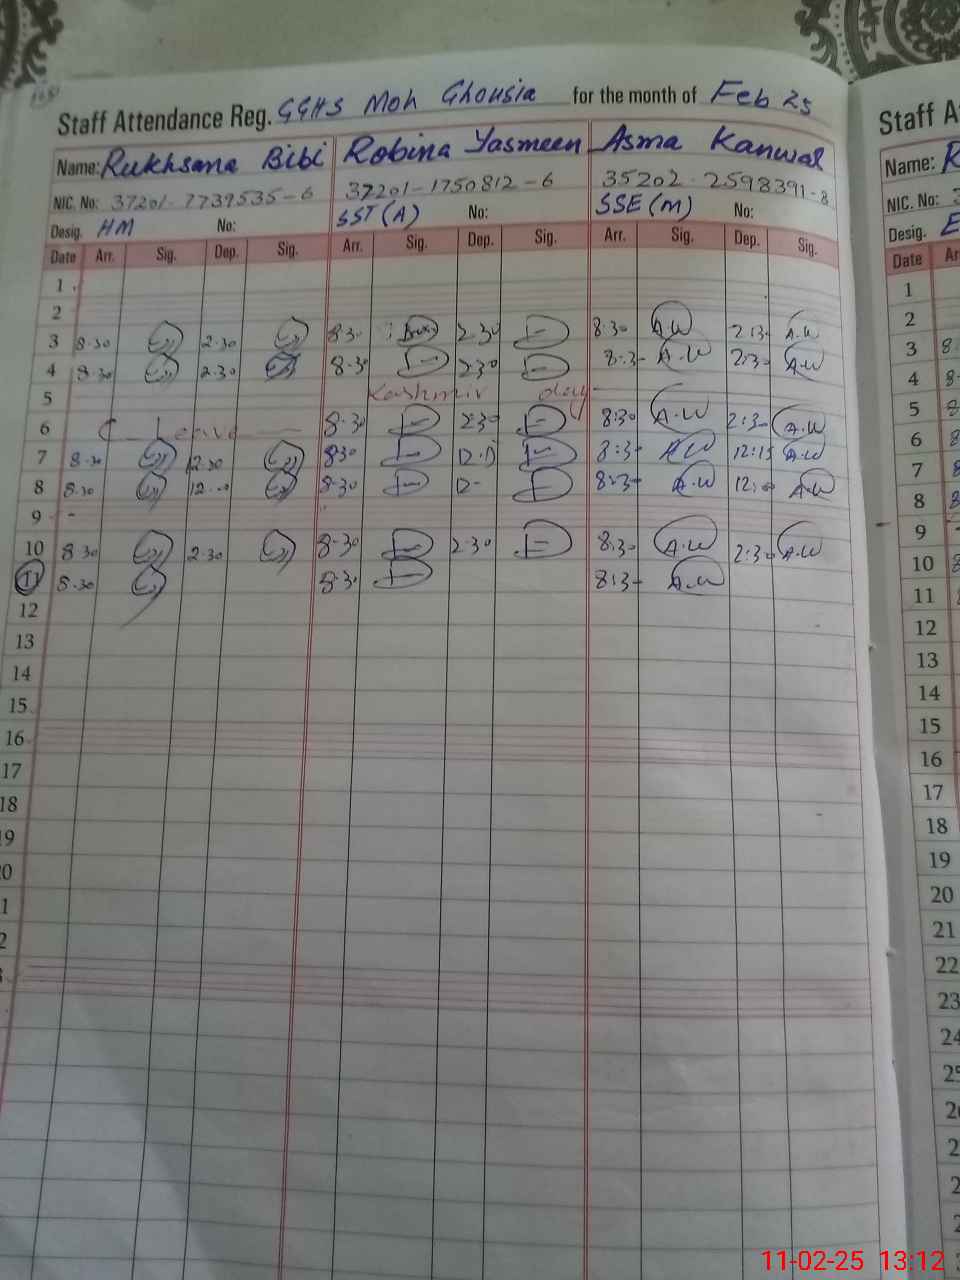 Staff Attendance Reg. GGHS Moh Ghousia for the month of Feb 25
Name: Rukhsana Bibi Robina Yasmeen Asma Kanwal
NIC. No: 37201-7739535-6 37201-1750812-6 35202-2598391-8
Desig. HM No: SST (A) No: SSE (M) No:
Date Arr. Sig. Dep. Sig. Arr. Sig. Dep. Sig. Arr. Sig. Dep. Sig.
1
2
3 8.30 2.30 8.30 2.30 8.30 A.W 2:3- A.W
4 8.30 2.30 8.30 2:30 8:3- A.W 2:3- A.W
5 Kashmir day
6 C Leave 8.30 2:30 8:30 A.W 2:3- A.W
7 8.30 12.30 8:30 8:3- A.W 12:15 A.W
8 8.30 12. 8.30 12- 8:3- A.W 12: A.W
9
10 8.30 2.30 8.30 2.30 8:3- A.W 2:3- A.W
11 8.30 8.30 8:3- A.W
12
13
14
15
16
17
18
19
20
Staff A
Name: R
NIC. No: 3
Desig. E
Date Ar
1
2
3 8
4 8
5 8
6 8
7 8
8 8
9
10
11
12
13
14
15
16
17
18
19
20
21
22
23
24
11-02-25 13:12